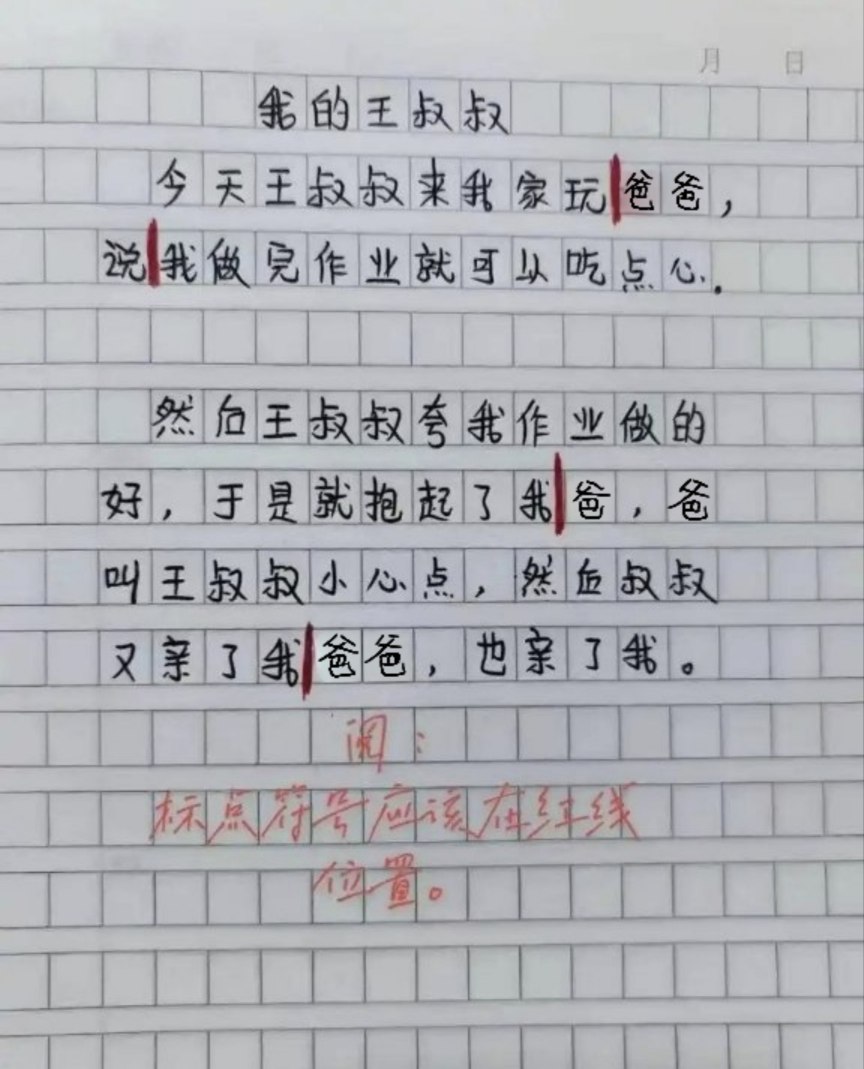 月 日
我的王叔叔
今天王叔叔来我家玩爸爸，
说我做完作业就可以吃点心.
然后王叔叔夸我作业做的
好，于是就抱起了我爸，爸
叫王叔叔小心点，然后叔叔
又亲了我爸爸，也亲了我。
阅：
标点符号应该在红线
位置。